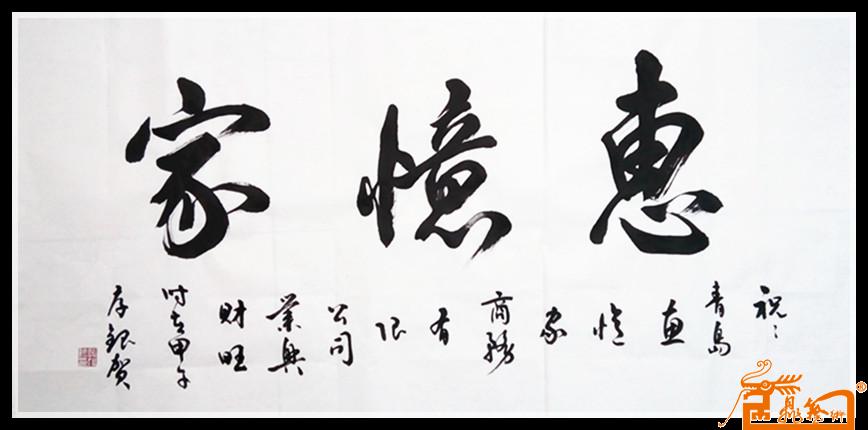 惠憶家
祝：
青島
惠
憶
家
商務
有
限
公司
業興
財旺
时在甲
銀賀